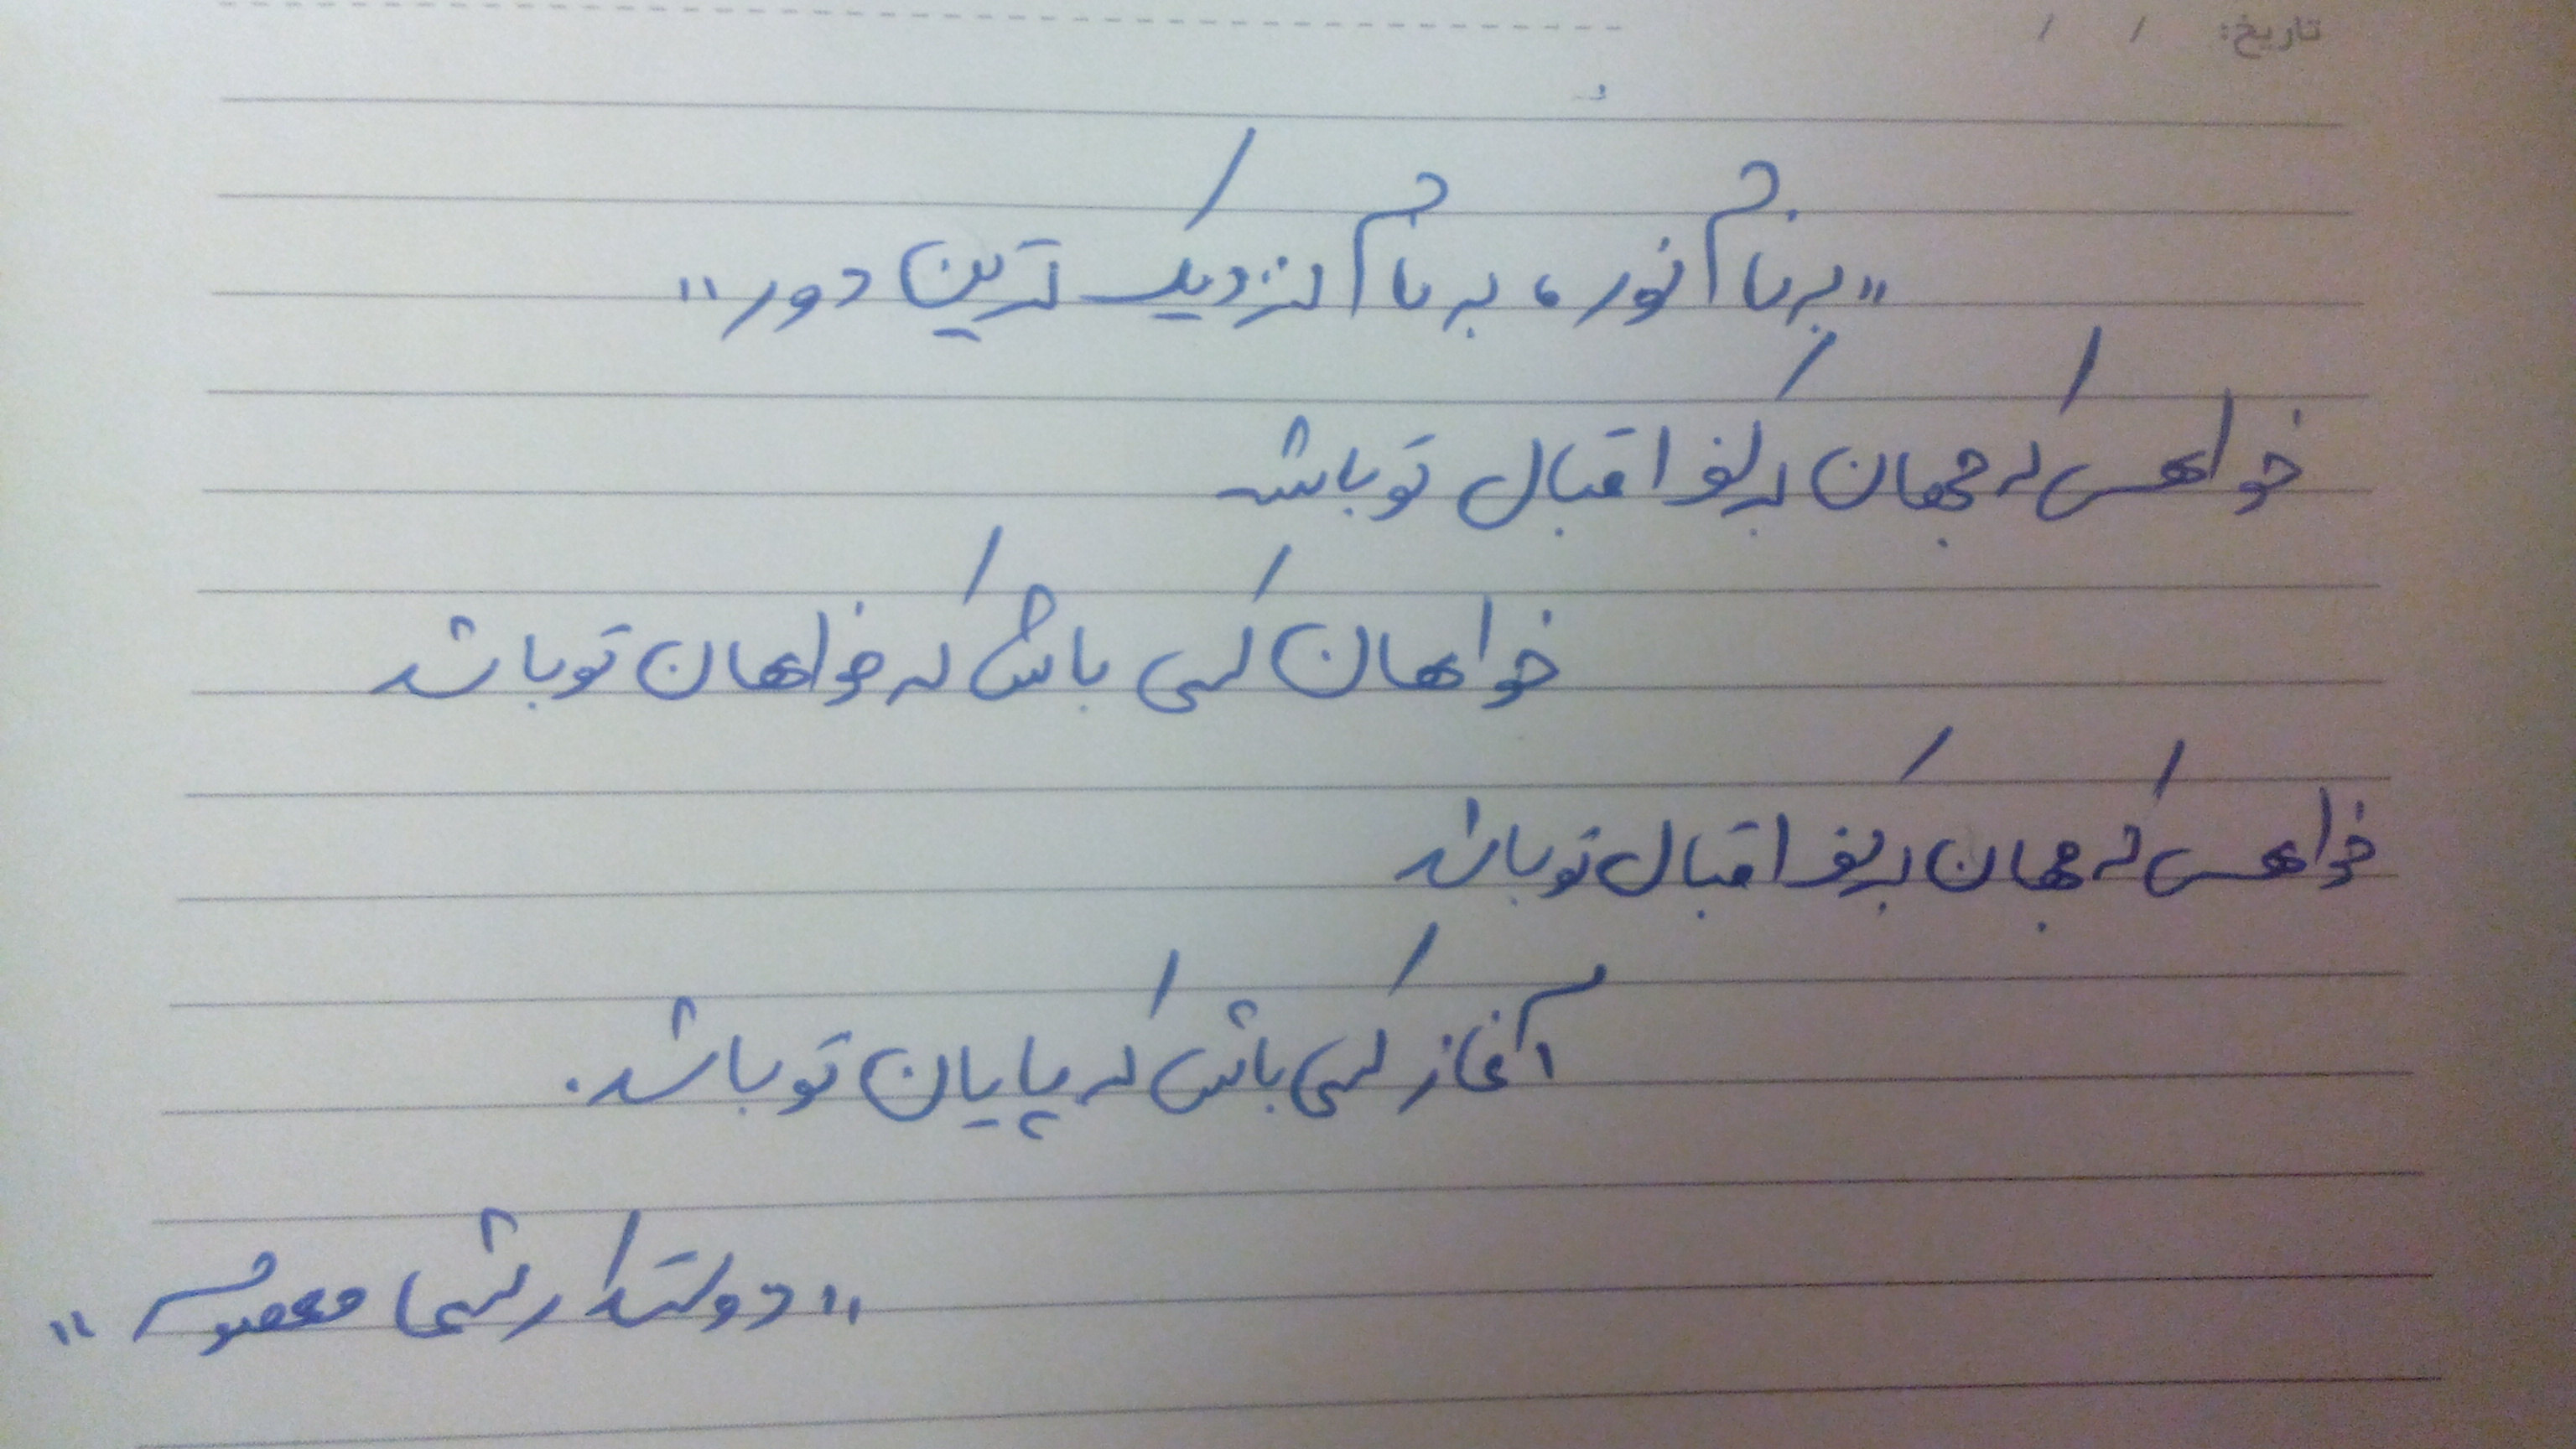 تاریخ: / /
"به نام نور، به نام نزدیک ترین دور"
خواهی که جهان در کف اقبال تو باشد
خواهان کسی باش که خواهان تو باشد
خواهی که جهان در کف اقبال تو باشد
آغاز کسی باش که پایان تو باشد.
"دوستدار شما معصومه"